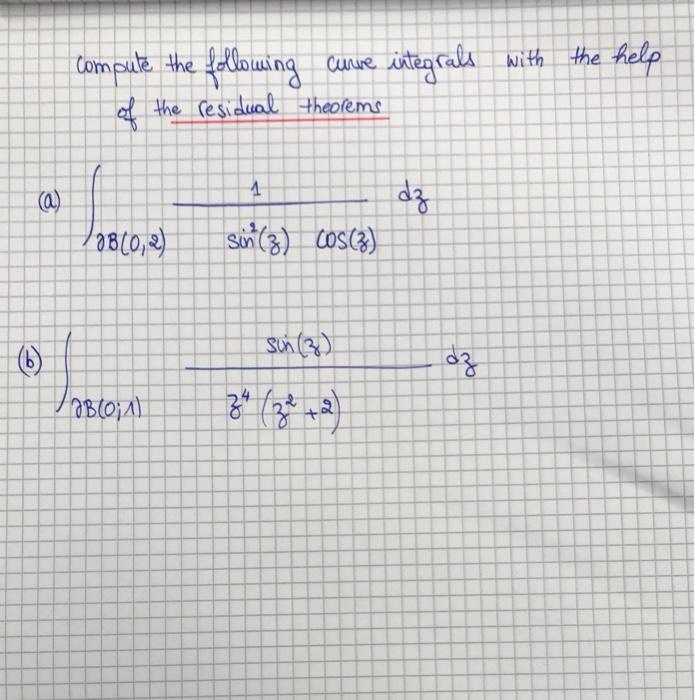 compute the following curve integrals with the help
of the residual theorems
(a) ∫_{∂B(0,2)} 1 / (sin²(z) cos(z)) dz
(b) ∫_{∂B(0;1)} sin(z) / (z⁴ (z² + 2)) dz